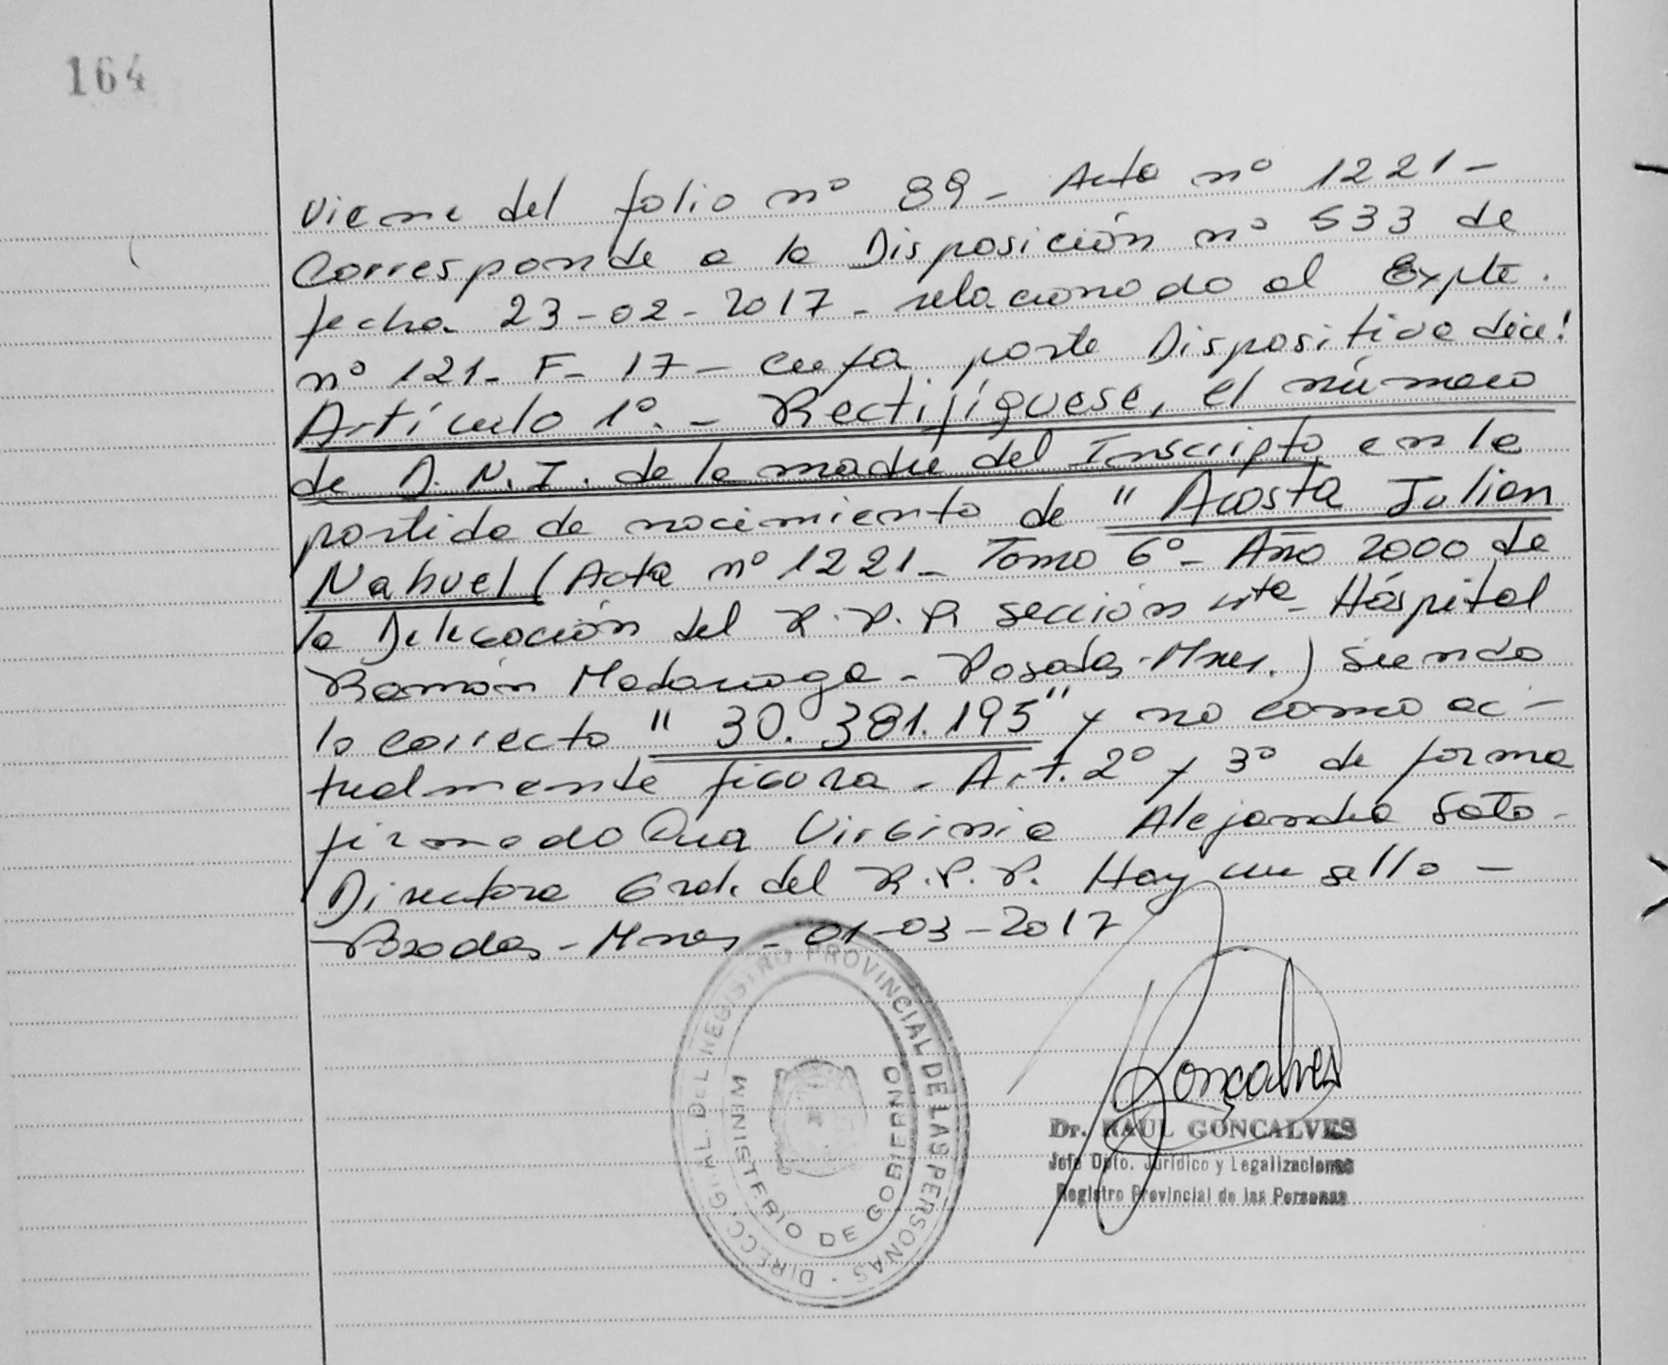 164
Viene del folio nº 89 - Acta nº 1221 -
Corresponde a la Disposición nº 533 de
fecha 23-02-2017 - relacionado al Expte.
nº 121 - F - 17 - cuya parte Dispositiva dice:
Artículo 1º. - Rectifíquese, el número
de D.N.I. de la madre del Inscripto en la
partida de nacimiento de "Acosta Julian
Nahuel (Acta nº 1221 - Tomo 6º - Año 2000 de
la Delegación del R.P.P. sección 4ta - Hospital
Ramón Madariaga - Posadas - Mnes.) siendo
lo correcto "30.381.195" y no como ac-
tualmente figura. Art. 2º y 3º de forma
firmado Dra Virginia Alejandra Soto -
Directora Gral. del R.P.P. Hay un sello -
Posadas - Mnes - 01-03-2017
DIRECC. GRAL. DEL REGISTRO PROVINCIAL DE LAS PERSONAS
MINISTERIO DE GOBIERNO
Goncalves
Dr. RAUL GONCALVES
Jefe Dpto. Jurídico y Legalizaciones
Registro Provincial de las Personas